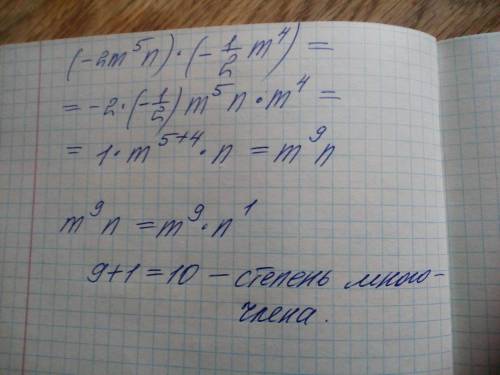 (-2m⁵n)·(-1/2 m⁴) =
= -2·(-1/2)m⁵n·m⁴ =
= 1·m⁵⁺⁴·n = m⁹n
m⁹n = m⁹·n¹
9+1=10 – степень много-
члена.